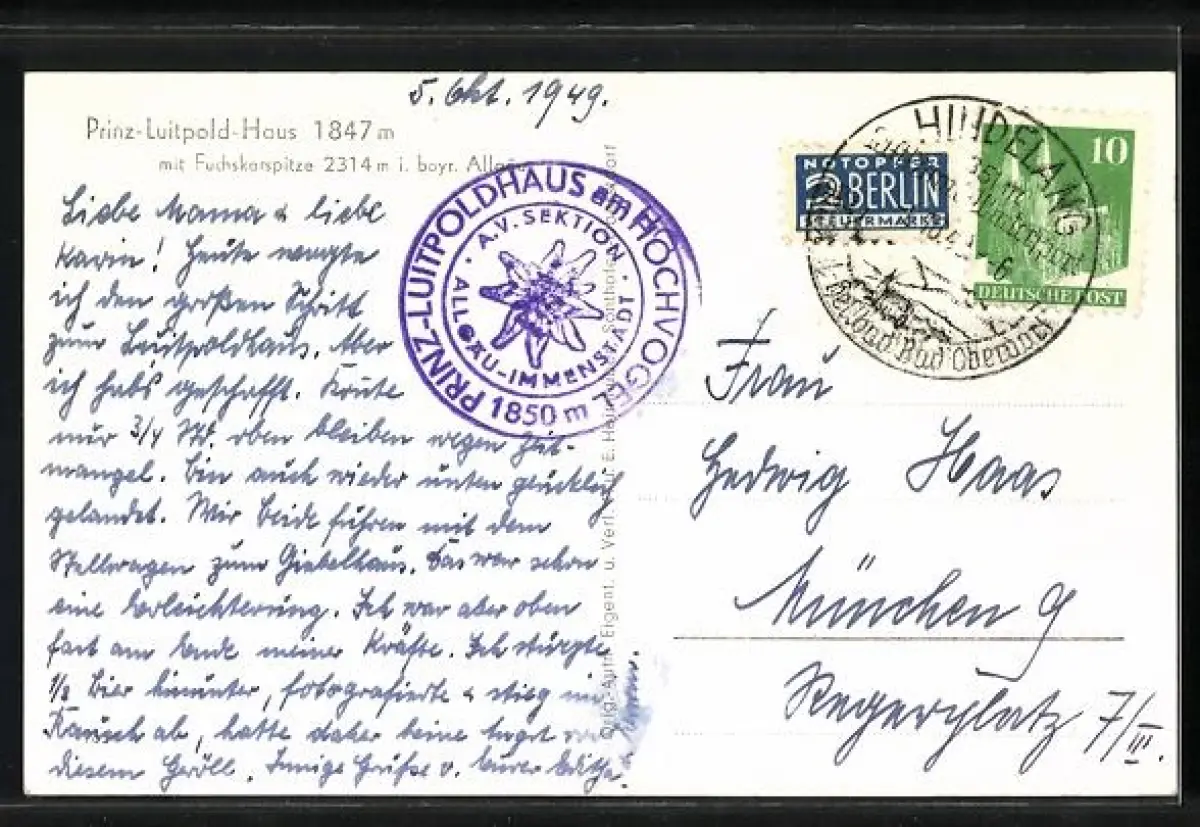 5. Okt. 1949.
Prinz-Luitpold-Haus 1847 m
mit Fuchskarspitze 2314 m i. bayr. Allgäu
Liebe Mama & liebe
Karin! Heute wagte
ich den großen Schritt
zum Luitpoldhaus. Aber
ich habs geschafft. Konnte
nur 3/4 Std. oben bleiben wegen Zeit-
mangel. Bin auch wieder unten glücklich
gelandet. Wir beide fuhren mit dem
Stellwagen zum Giebelhaus. Das war schon
eine Erleichterung. Ich war aber oben
fast am Ende meiner Kräfte. Ich stürzte
1/8 Bier hinunter, fotografierte & stieg im
Rausch ab, hatte daher keine Angst vor
diesem Geröll. Innige Grüße v. Eurer Edith.
PRINZ-LUITPOLDHAUS am HOCHVOGEL
A.V. SEKTION
ALLGÄU-IMMENSTADT
1850 m
Orig.-Aufn. Eigent. u. Verl. E.
NOTOPFER
2 BERLIN
STEUERMARKE
HINDELANG
Bad Oberdorf
10
DEUTSCHE POST
Frau
Hedwig Haas
München 9
Regerplatz 7/III.